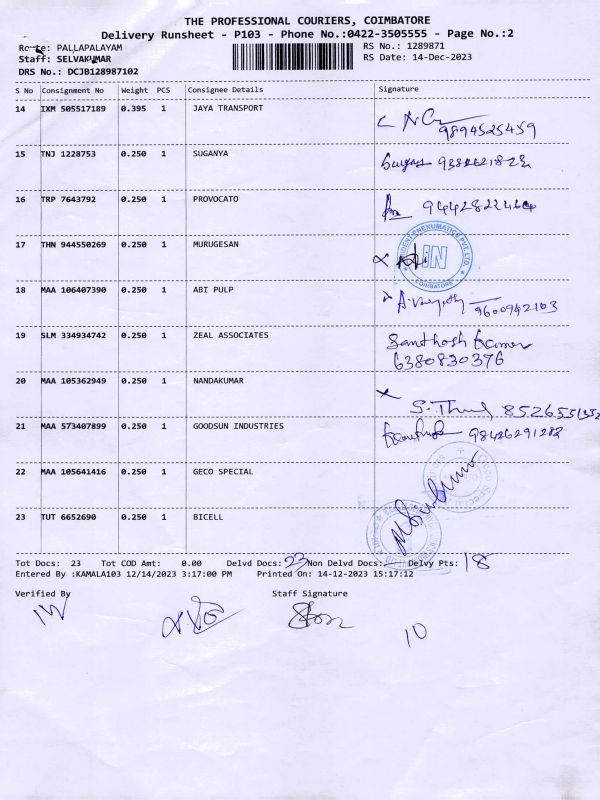 THE PROFESSIONAL COURIERS, COIMBATORE
Delivery Runsheet - P103 - Phone No.:0422-3505555 - Page No.:2
Route: PALLAPALAYAM
Staff: SELVAKUMAR
DRS No.: DCJB128987102
RS No.: 1289871
RS Date: 14-Dec-2023
S No Consignment No Weight PCS Consignee Details Signature
14 IXM 505517189 0.395 1 JAYA TRANSPORT
9894525459
15 TNJ 1228753 0.250 1 SUGANYA
16 TRP 7643792 0.250 1 PROVOCATO
17 THN 944550269 0.250 1 MURUGESAN
COIMBATORE
18 MAA 106407390 0.250 1 ABI PULP
9600942103
19 SLM 334934742 0.250 1 ZEAL ASSOCIATES
Santhosh Kumar
6380830376
20 MAA 105362949 0.250 1 NANDAKUMAR
21 MAA 573407899 0.250 1 GOODSUN INDUSTRIES
22 MAA 105641416 0.250 1 GECO SPECIAL
23 TUT 6652690 0.250 1 BICELL
Tot Docs: 23 Tot COD Amt: 0.00 Delvd Docs: 23 Non Delvd Docs: Delvy Pts: 18
Entered By :KAMALA103 12/14/2023 3:17:00 PM Printed On: 14-12-2023 15:17:12
Verified By Staff Signature
10